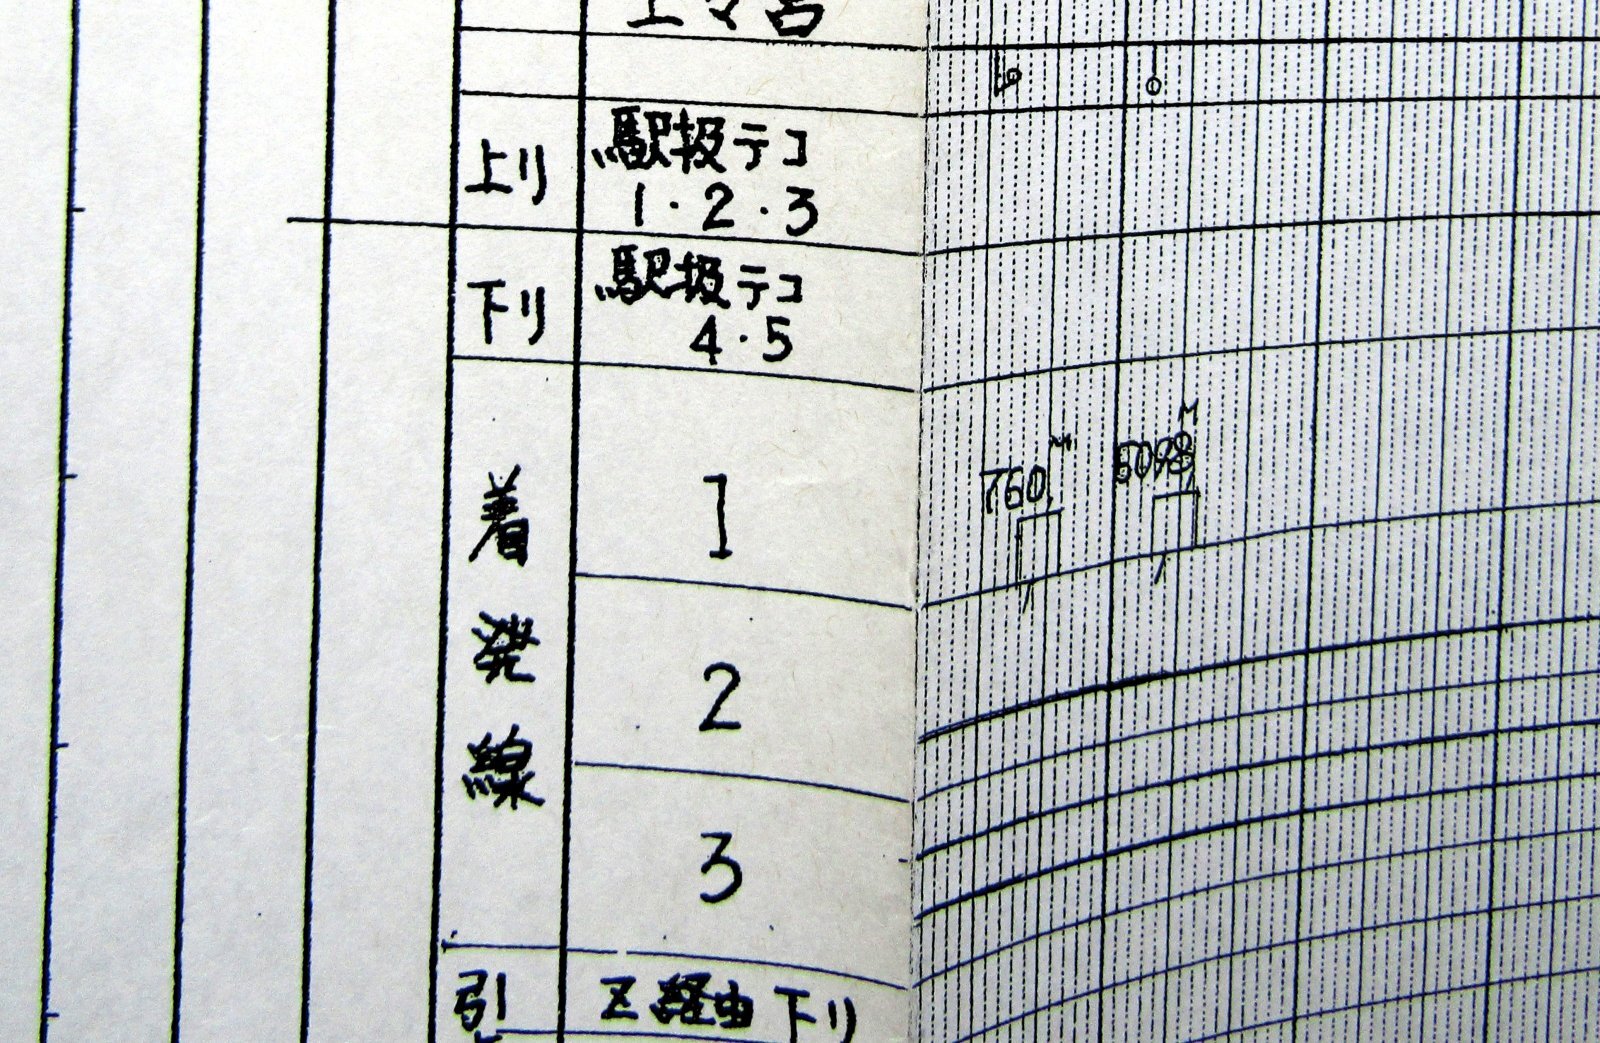 上り
駅扱テコ
1・2・3
下り
駅扱テコ
4・5
着発線
1
760M
2
3
引
Z経由下り